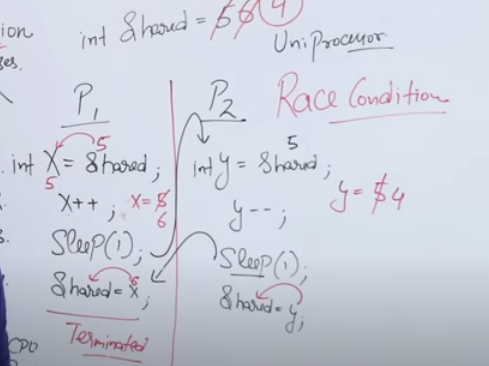 int Shared = 5 6 4
UniProcessor
Race Condition
P1
5
int X = Shared;
5
X++; X = 5
6
Sleep(1);
6
Shared = x;
Terminated
P2
5
int y = Shared;
y--;
y = 5 4
Sleep(1);
Shared = y;
CPU